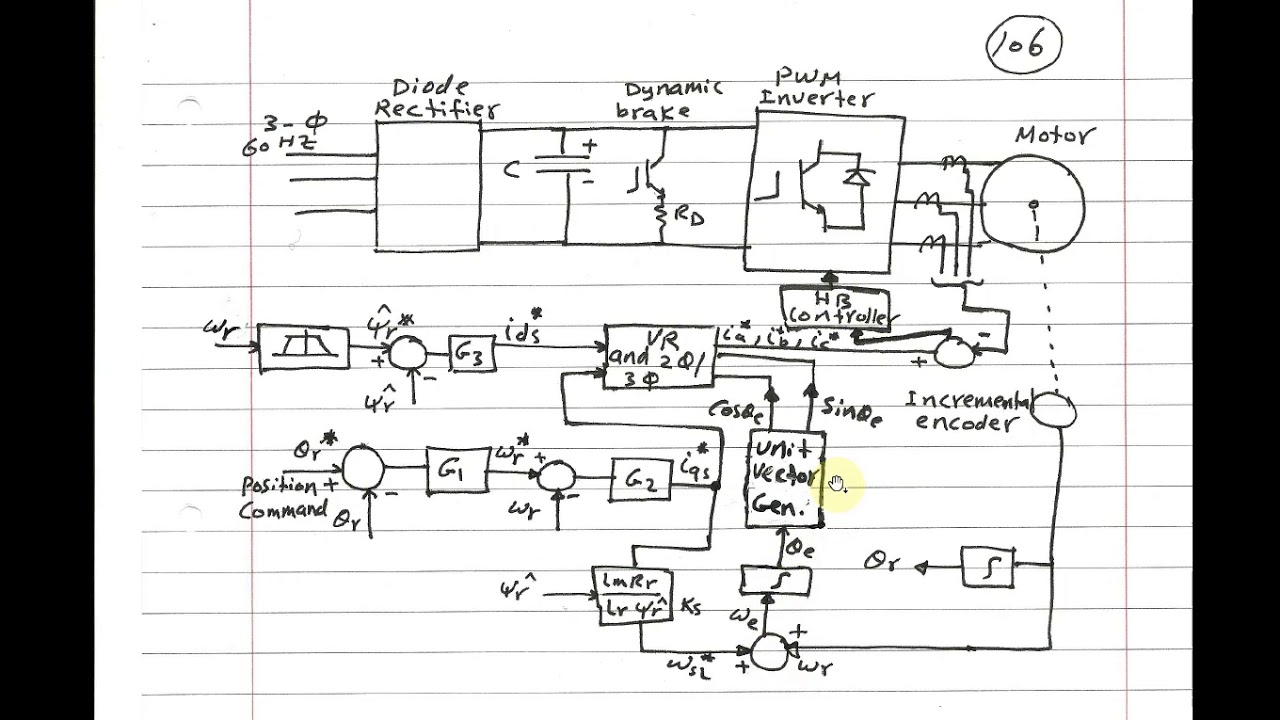 106
Diode
Rectifier
Dynamic
brake
PWM
Inverter
Motor
3-Φ
60 HZ
C
+
-
RD
HB
Controller
ωr
ψ̂r*
+
-
ψ̂r
G3
ids*
VR
and 2Φ/
3Φ
ia*, ib*, ic*
+
-
Cosθe
Sinθe
Incremental
encoder
θr*
Position +
Command
-
θr
G1
ωr*
+
-
ωr
G2
iqs*
Unit
Vector
Gen.
θe
∫
θr
∫
ψr^
LmRr
Lr ψr^
Ks
ωe
+
ωsL*
+
ωr